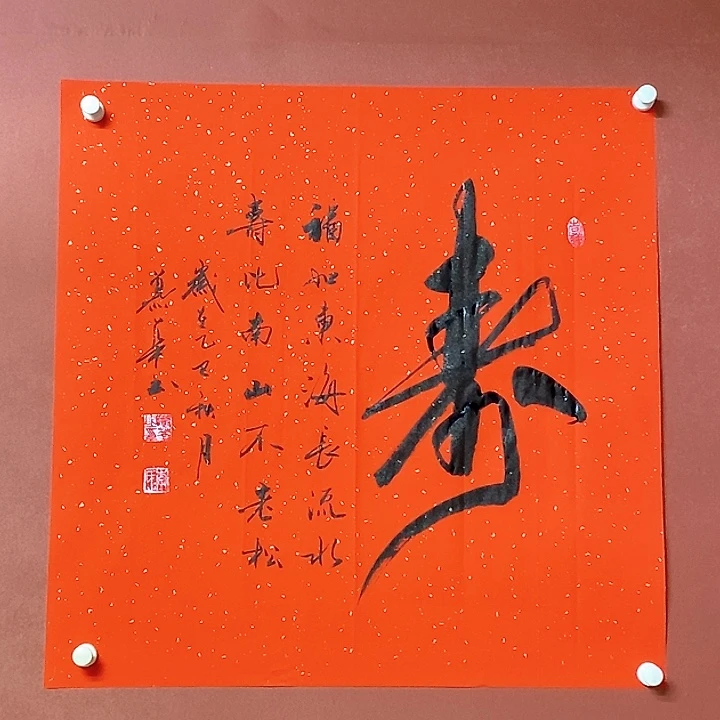 寿
福如东海长流水
壽比南山不老松
歲在乙巳秋月